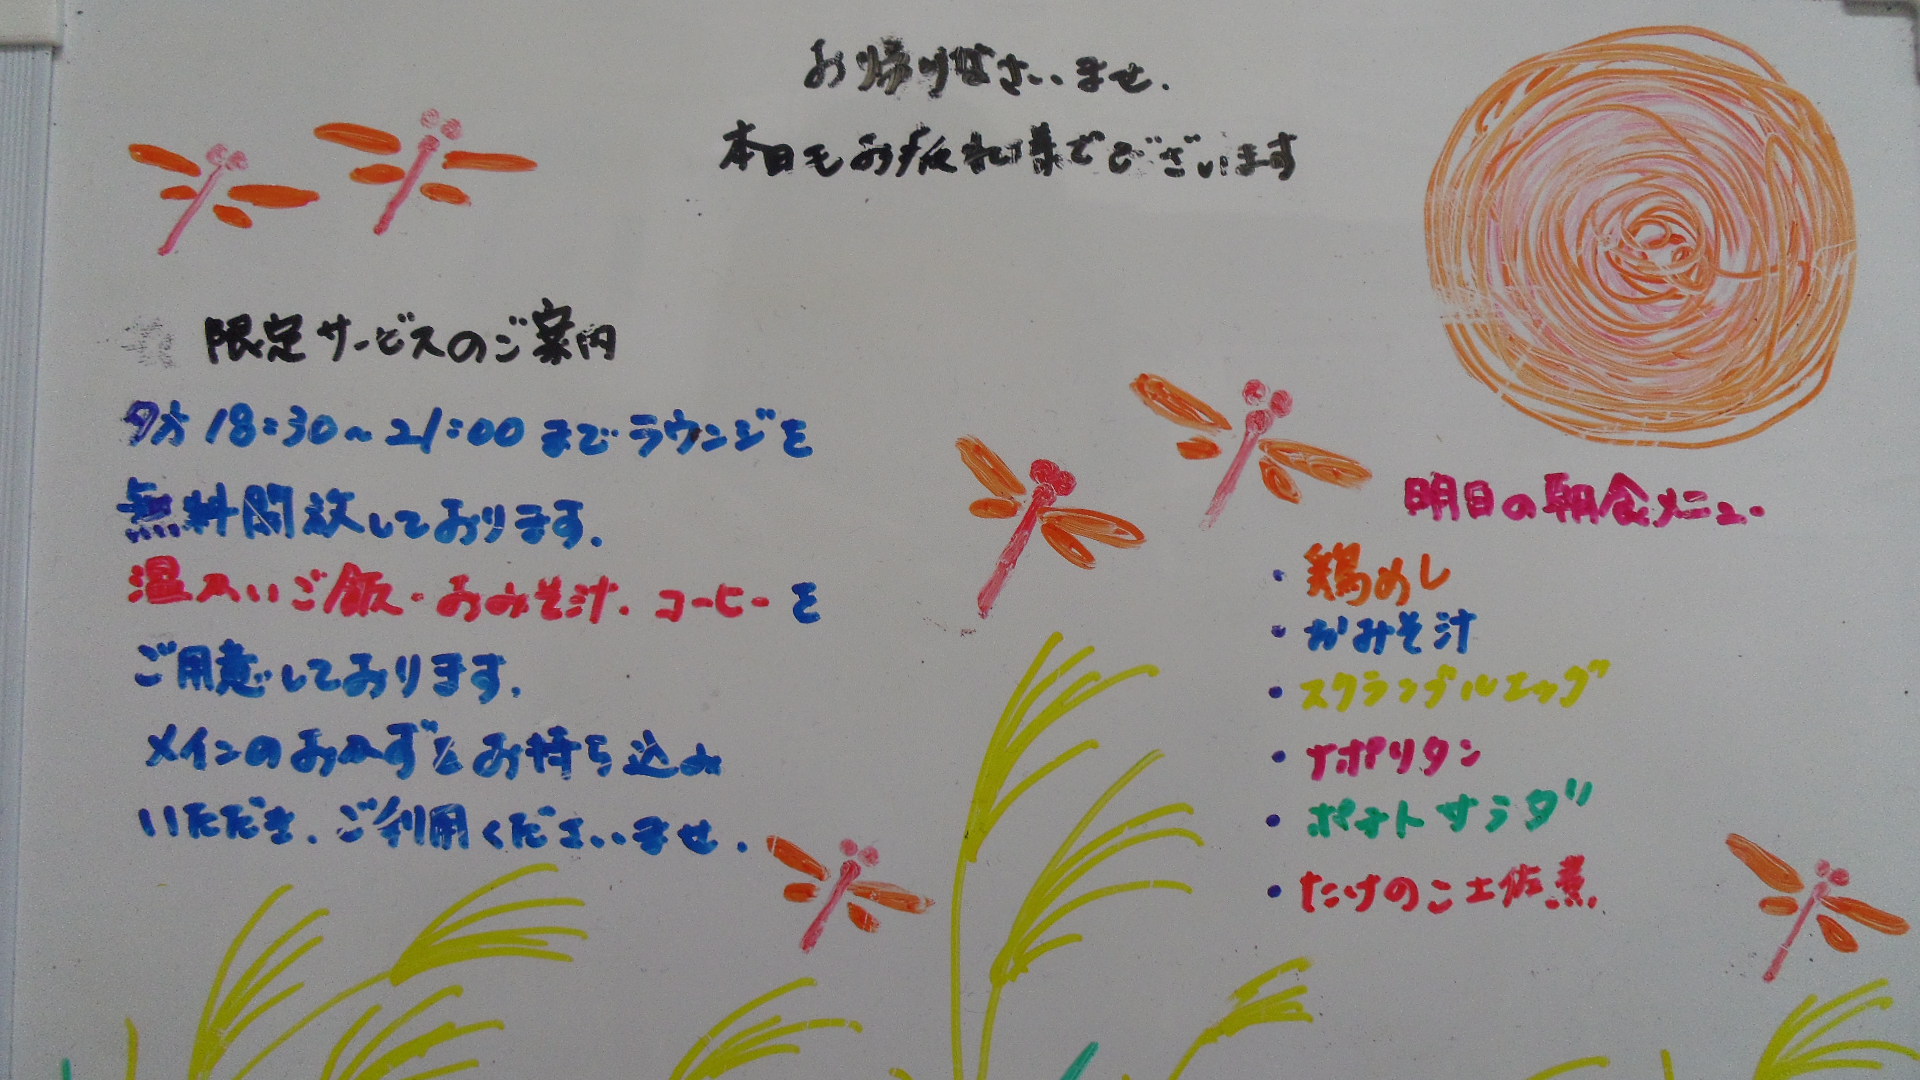 お帰りなさいませ.
本日もお疲れ様でございます
限定サービスのご案内
夕方 18:30~21:00 までラウンジを
無料開放しております.
温かいご飯・おみそ汁.コーヒーを
ご用意しております.
メインのおかずをお持ち込み
いただき.ご利用くださいませ.
明日の朝食メニュー
・鶏めし
・おみそ汁
・スクランブルエッグ
・ナポリタン
・ポテトサラダ
・たけのこ土佐煮